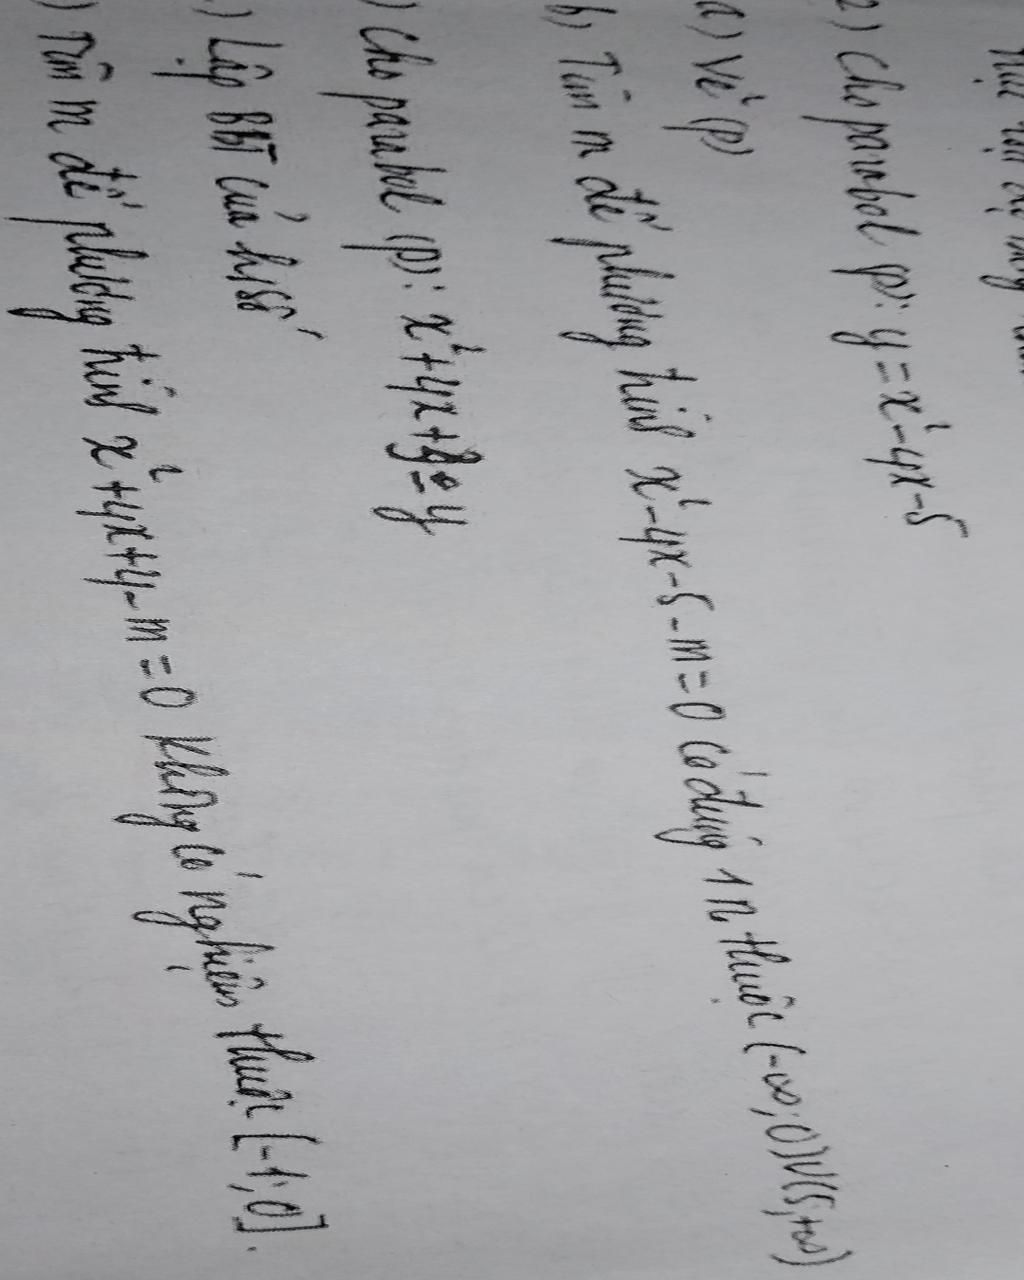 2) Cho parabol (P): y = x² - 4x - 5
a) Vẽ (P)
b) Tìm m để phương trình x² - 4x - 5 - m = 0 có đúng 1 n₀ thuộc (-∞; 0) ∪ (5; +∞)
) Cho parabol (P): x² + 4x + = y
.) Lập BBT của h/số
) Tìm m để phương trình x² + 4x + 4 - m = 0 không có nghiệm thuộc [-1; 0].